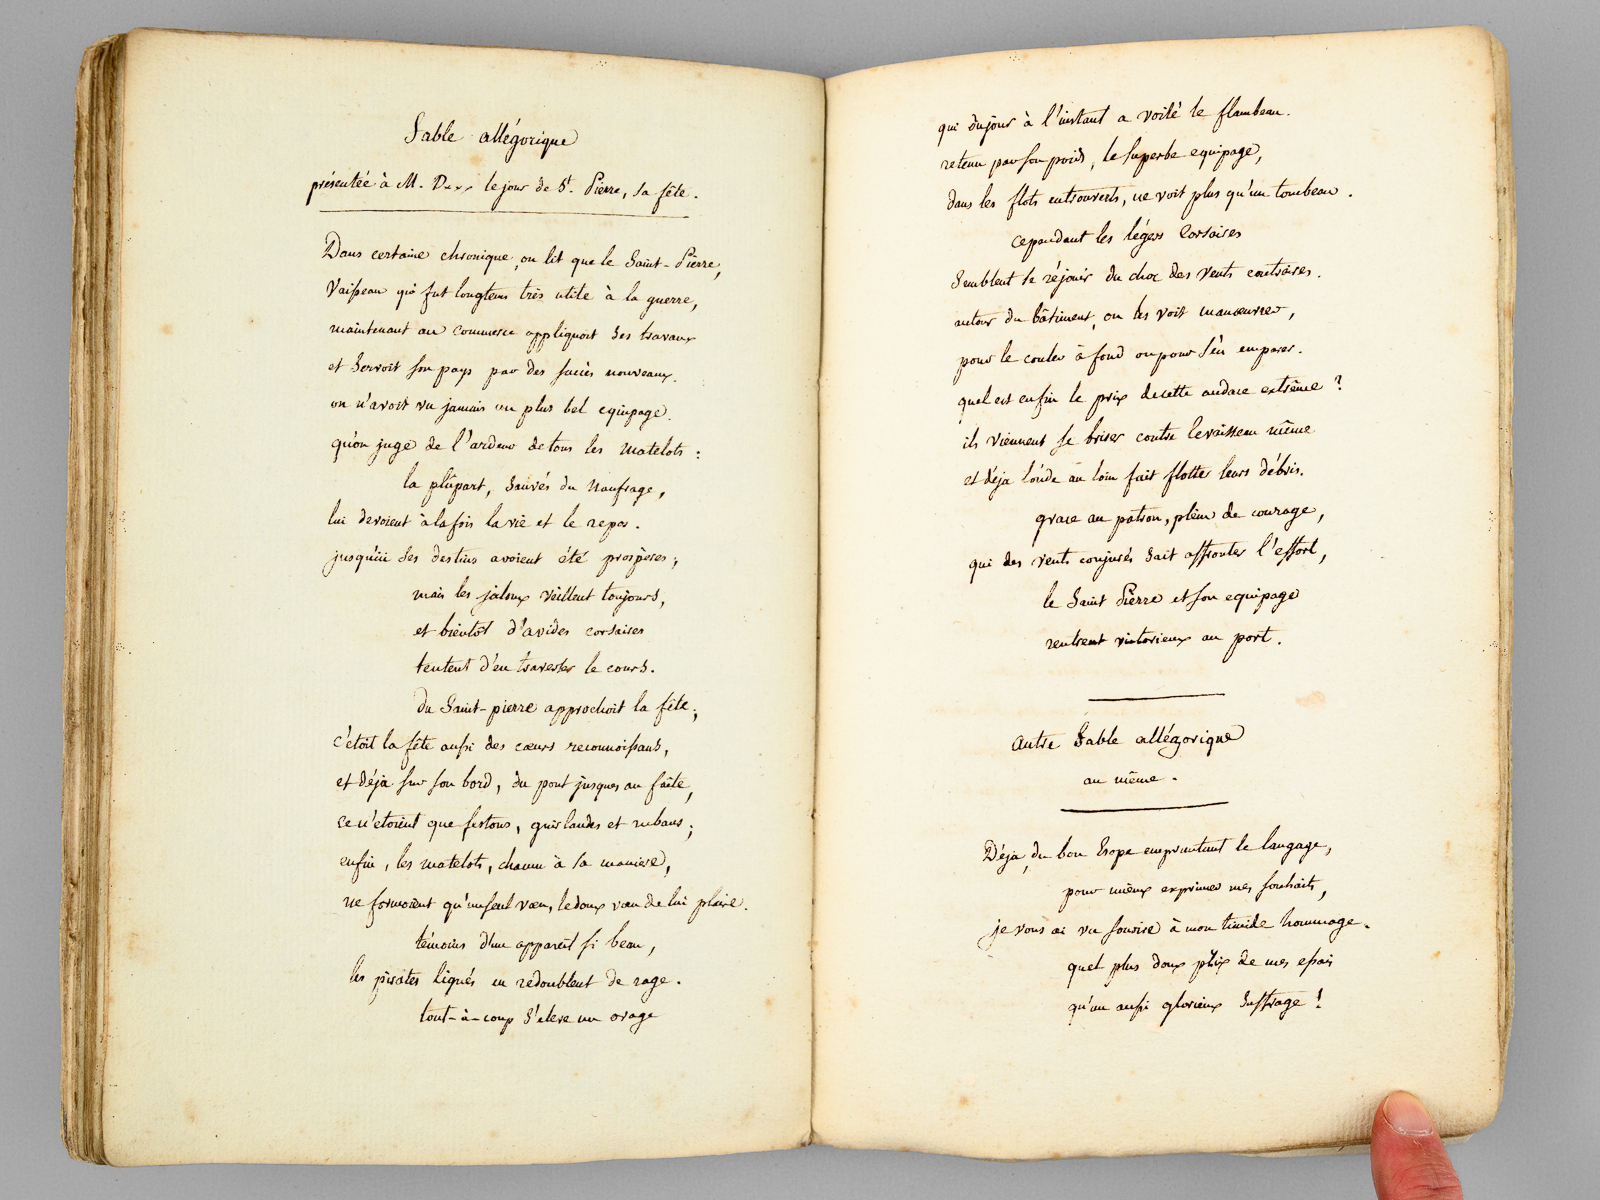 Fable allégorique
présentée à M. D... le jour de St. Pierre, sa fête.
Dans certaine chronique, on lit que le Saint-Pierre,
Vaisseau qui fut longtems très utile à la guerre,
maintenant au commerce appliquoit ses travaux
et servoit son pays par des succès nouveaux.
on n'avoit vu jamais un plus bel equipage.
qu'on juge de l'ardeur de tous les matelots :
la plûpart, sauvés du naufrage,
lui devoient à la fois la vie et le repos.
jusqu'ici ses destins avoient été prospères ;
mais les jaloux veillent toujours,
et bientôt d'avides corsaires
tentent d'en traverser le cours.
du Saint-pierre approchoit la fête ;
c'étoit la fête aussi des cœurs reconnoissants,
et déjà sur son bord, du pont jusques au faîte,
ce n'etoient que festons, guirlandes et rubans ;
enfin, les matelots, chacun à sa maniere,
ne formoient qu'un seul vœu, le doux vœu de lui plaire.
témoins d'un appareil si beau,
les pirates ligués en redoublent de rage.
tout-à-coup s'eleve un orage
qui du jour à l'instant a voilé le flambeau.
retenu par son poids, le superbe equipage,
dans les flots entrouverts, ne voit plus qu'un tombeau.
cependant les légers Corsaires
Semblent se réjouir du choc des vents contraires.
autour du bâtiment, on les voit manœuvrer,
pour le couler à fond ou pour s'en emparer.
quel est enfin le prix de cette audace extrême ?
ils viennent se briser contre le vaisseau même
et déja l'onde au loin fait flotter leurs débris.
grace au patron, plein de courage,
qui des vents conjurés sait affronter l'effort,
le Saint Pierre et son equipage
rentrent victorieux au port.
Autre Fable allégorique
au même.
Déja, du bon Esope empruntant le langage,
pour mieux exprimer mes souhaits,
je vous ai vu sourire à mon timide hommage.
quel plus doux prix de mes essais
qu'un aussi glorieux suffrage !